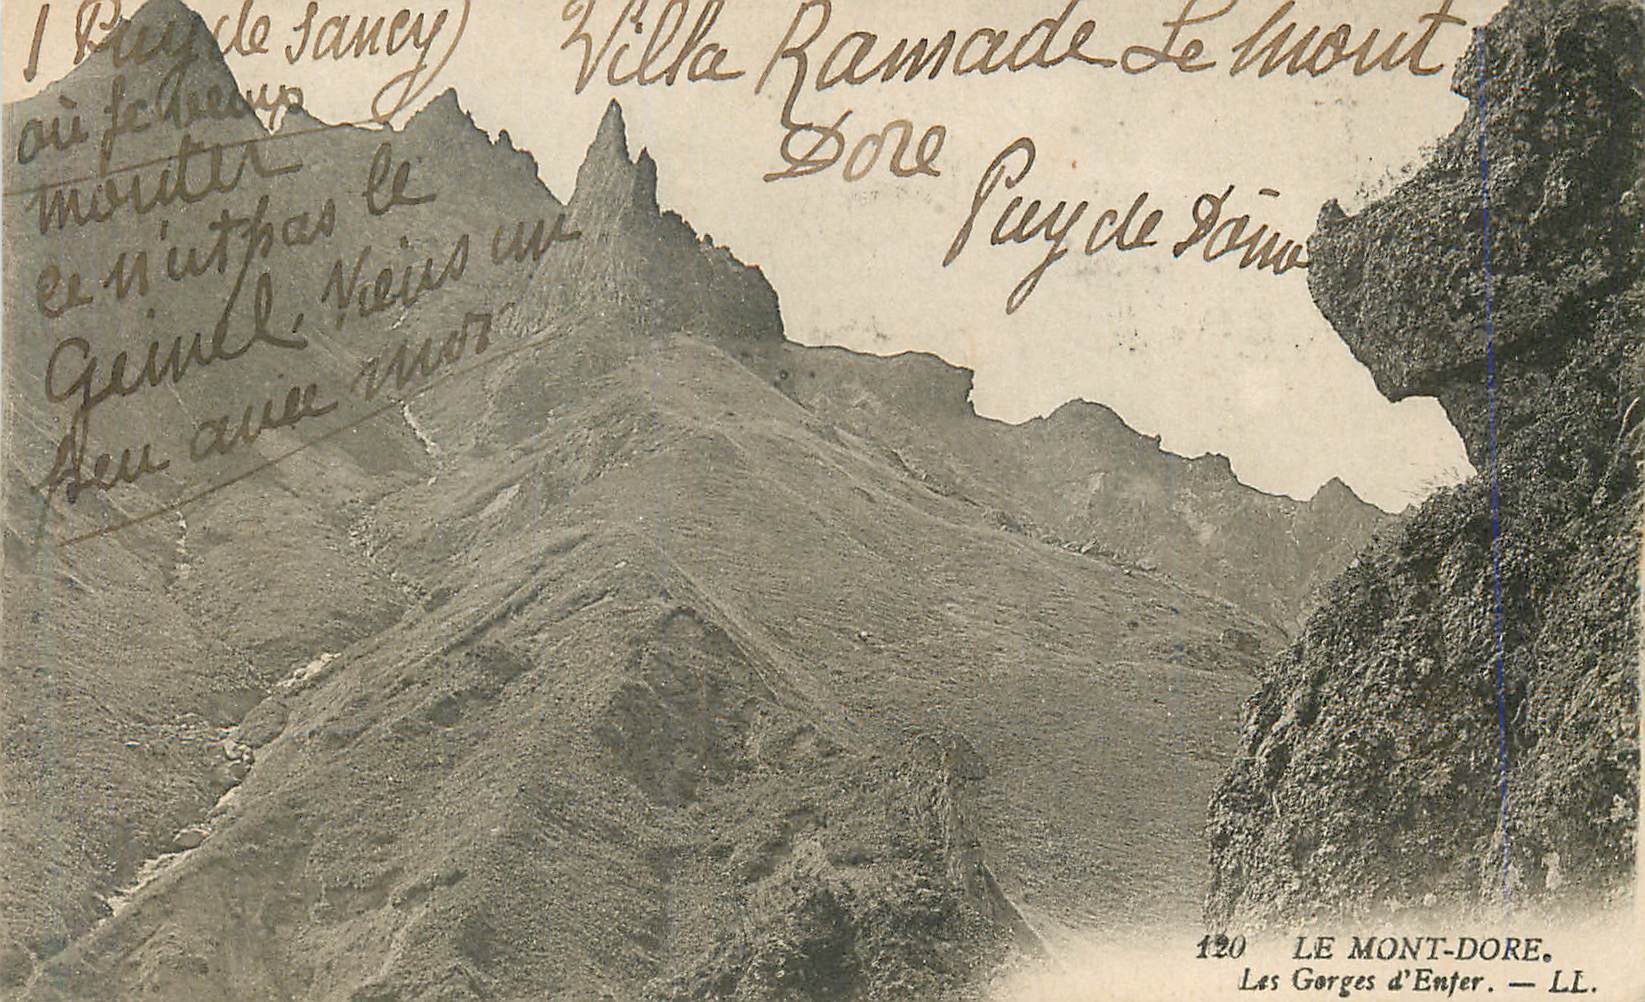 (Puy de Sancy)
où je
monter
ce n'est pas le
Geinel. Viens un
peu avec moi
Villa Ramade Le Mont
Dore
Puy de Dôme
120 LE MONT-DORE.
Les Gorges d'Enfer. — LL.